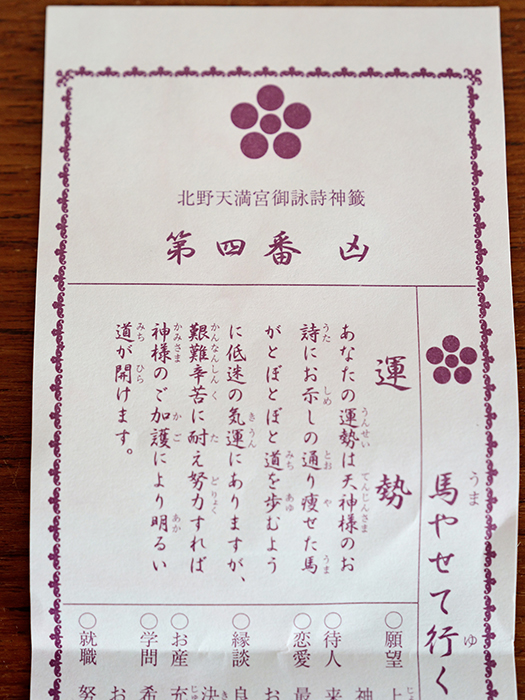 北野天満宮御詠詩神籤
第四番 凶
馬やせて行く
運勢
あなたの運勢は天神様のお
詩にお示しの通り痩せた馬
がとぼとぼと道を歩むよう
に低迷の気運にありますが、
艱難辛苦に耐え努力すれば
神様のご加護により明るい
道が開けます。
○願望 上
神
○待人 来
○恋愛 最
お
○縁談 良
決
○お産 充
○学問 希
お
○就職 努